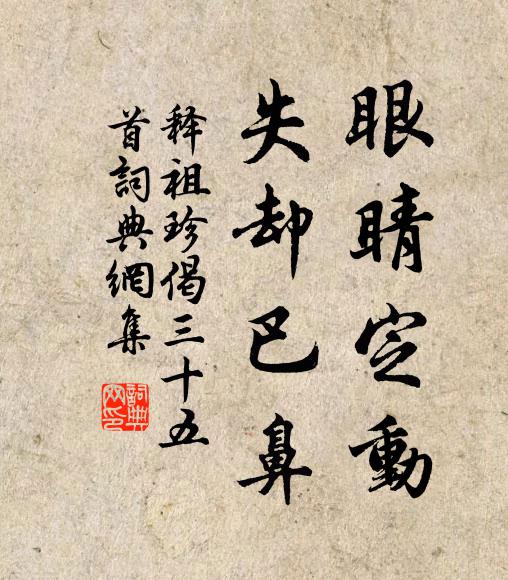 眼睛定動
失却巴鼻
释祖珍偈三十五
首詞典網集
詞典網印